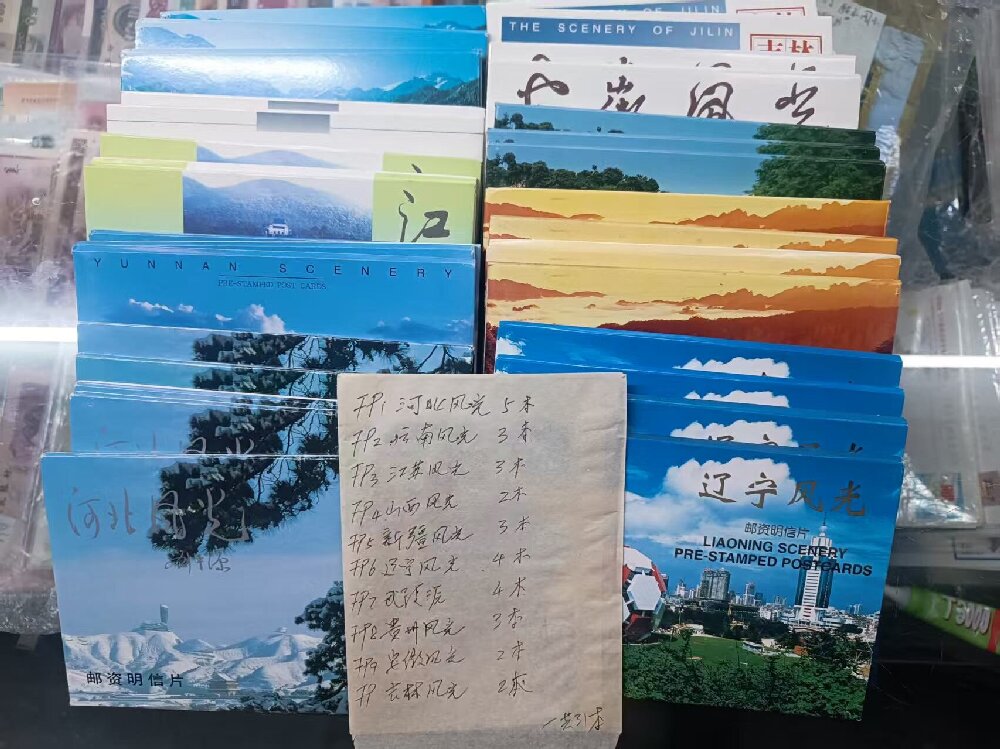 THE SCENERY OF JILIN
吉林
江
YUNNAN SCENERY
PRE-STAMPED POST CARDS
河北风光
邮资明信片
辽宁风光
邮资明信片
LIAONING SCENERY
PRE-STAMPED POSTCARDS
FP1 河北风光 5本
FP2 云南风光 3本
FP3 江苏风光 3本
FP4 山西风光 2本
FP5 新疆风光 3本
FP6 辽宁风光 4本
FP7 武陵源 4本
FP8 贵州风光 3本
FP9 安徽风光 2本
FP 吉林风光 2本
一共31本